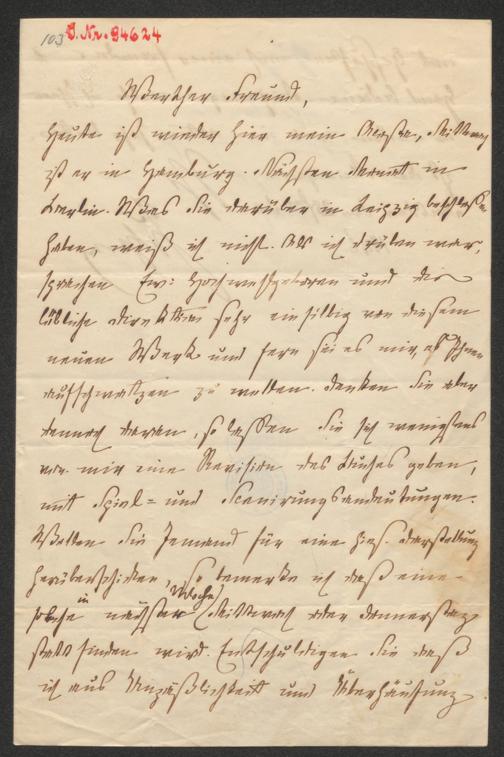 103 J. Nr. 94624
Werther Freund,
heute ist wieder hier mein Mittwoch
ist er in Hamburg. Nächsten Monat in
Berlin. Was Sie darüber in Leipzig beschlossen
haben, weiß ich nicht. Als ich drüben war,
sprachen Ew: Hochwohlgeboren und die
löbliche Direktion sehr einsilbig von diesem
neuen Werk und fern sei es mir, es Ihnen
aufschwatzen zu wollen. Denken Sie aber
dennoch daran, so lassen Sie sich wenigstens
von mir eine Revision des Buches geben,
mit Spiel- und Scenirungsandeutungen.
Wollen Sie Jemand für eine hies. Darstellung
herüberschicken, so bemerke ich daß eine
solche in nächster Woche (Mittwoch oder Donnerstag)
stattfinden wird. Entschuldigen Sie daß
ich aus Unpäßlichkeit und Überhäufung